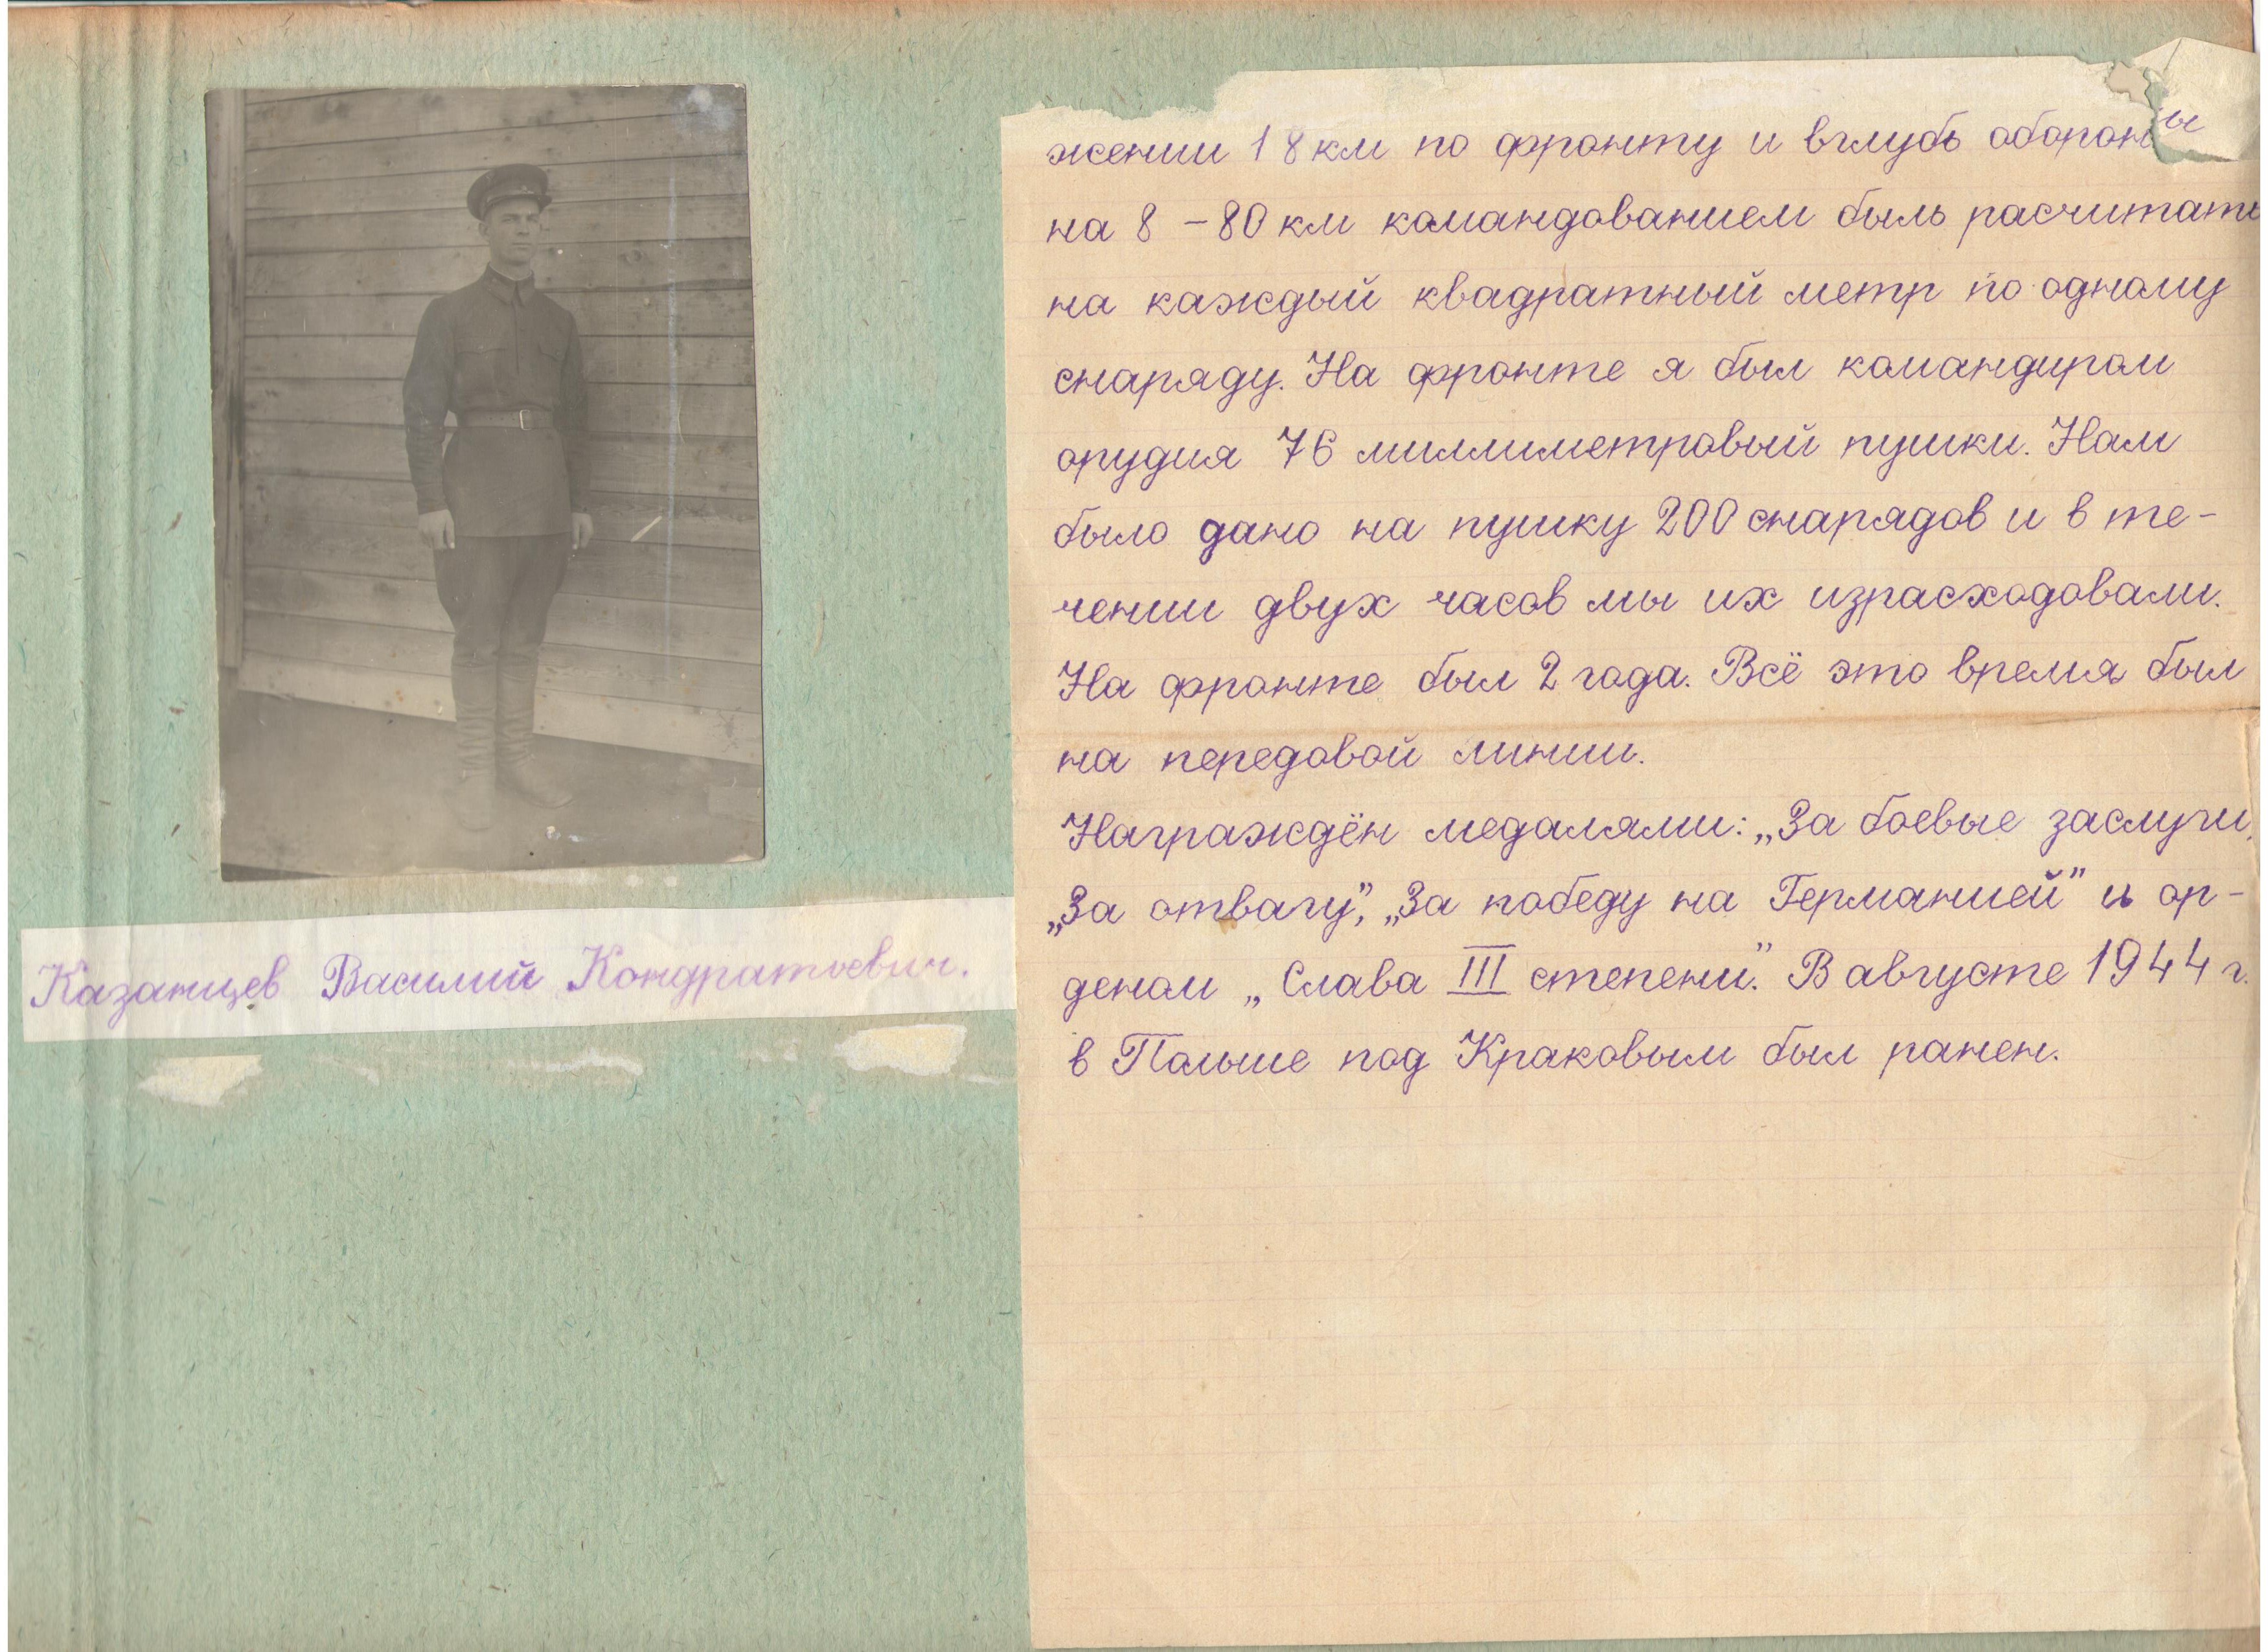 Казанцев Василий Кондратьевич.
жении 18 км по фронту и вглубь обороны
на 8 – 80 км командованием быль расчитать
на каждый квадратный метр по одному
снаряду. На фронте я был командиром
орудия 76 миллиметровый пушки. Нам
было дано на пушку 200 снарядов и в те-
чении двух часов мы их израсходовали.
На фронте был 2 года. Всё это время был
на передовой линии.
Награждён медалями: „За боевые заслуги,
„За отвагу”, „За победу на Германией” и ор-
деном „Слава III степени”. В августе 1944 г.
в Польше под Краковым был ранен.